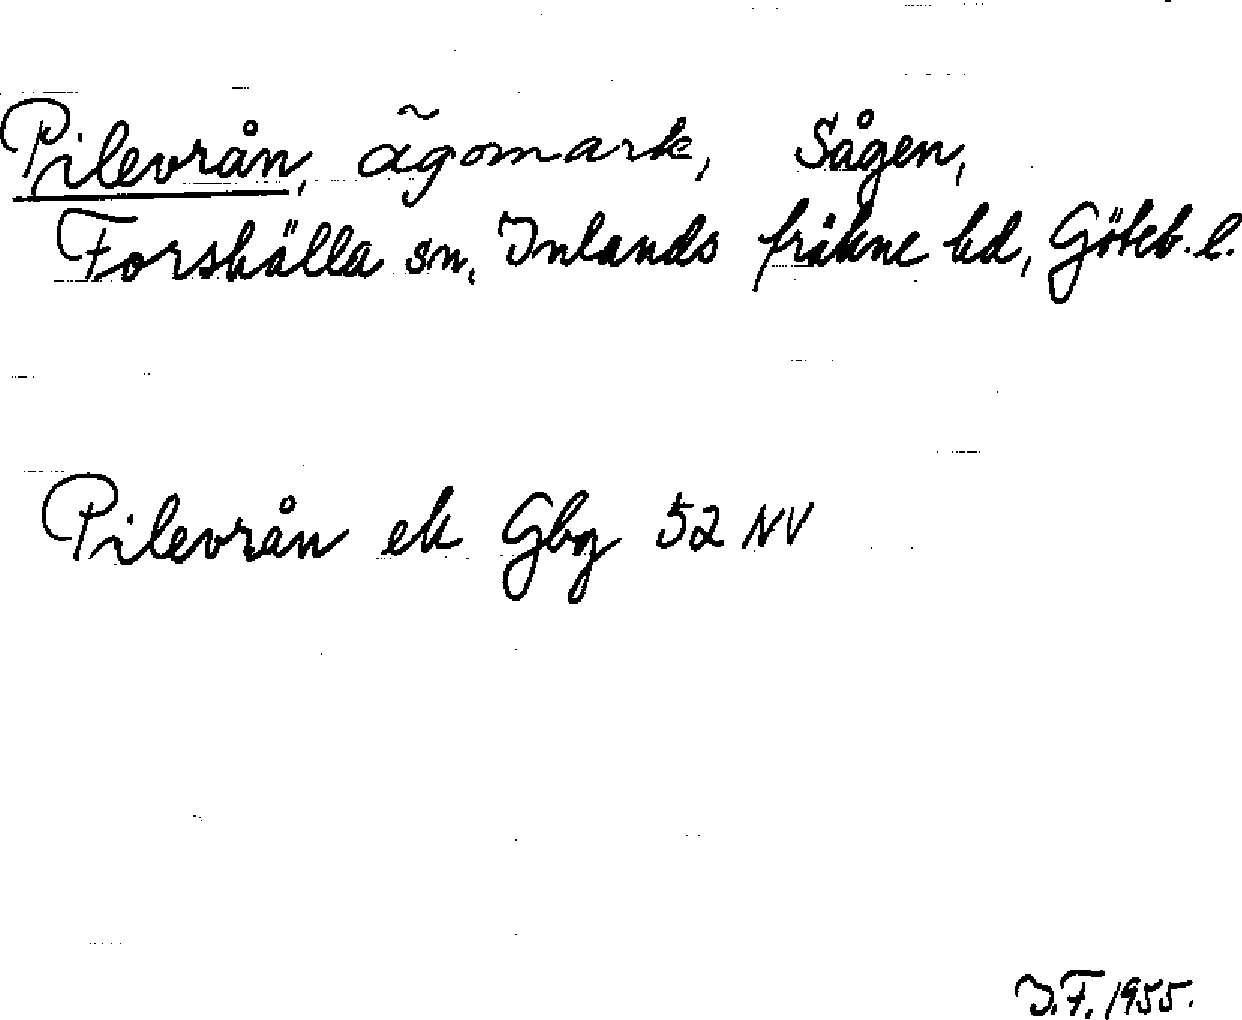 Pilevrån, ägomark, Sågen,
Forshälla sn, Inlands fräkne hd, Göteb. l.
Pilevrån ek Gbg 52 NV
J.F. 1955.